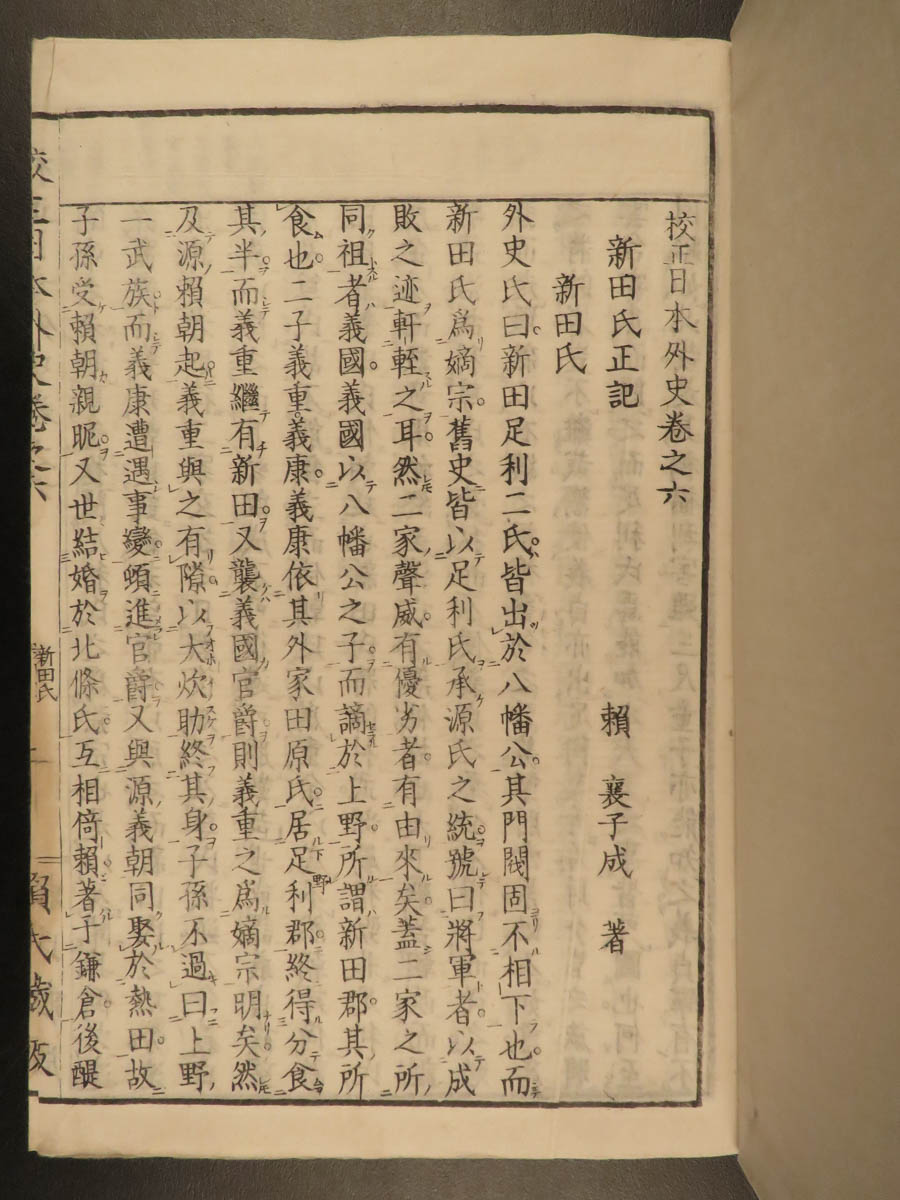 校正日本外史卷之六
新田氏正記 賴 襄子成 著
新田氏
外史氏曰新田足利二氏皆出於八幡公其門閥固不相下也而
新田氏爲嫡宗舊史皆以足利氏承源氏之統號曰將軍者以成
敗之迹軒輊之耳然二家聲威有優劣者有由來矣蓋二家之所
同祖者義國義國以八幡公之子而謫於上野所謂新田郡其所
食也二子義重義康義康依其外家田原氏居足利郡終得分食
其半而義重繼有新田又襲義國官爵則義重之爲嫡宗明矣然
及源賴朝起義重與之有隙以大炊助終其身子孫不過曰上野
一武族而義康遭遇事變頻進官爵又與源義朝同娶於熱田故
子孫受賴朝親昵又世結婚於北條氏互相倚賴著于鎌倉後醍
新田氏